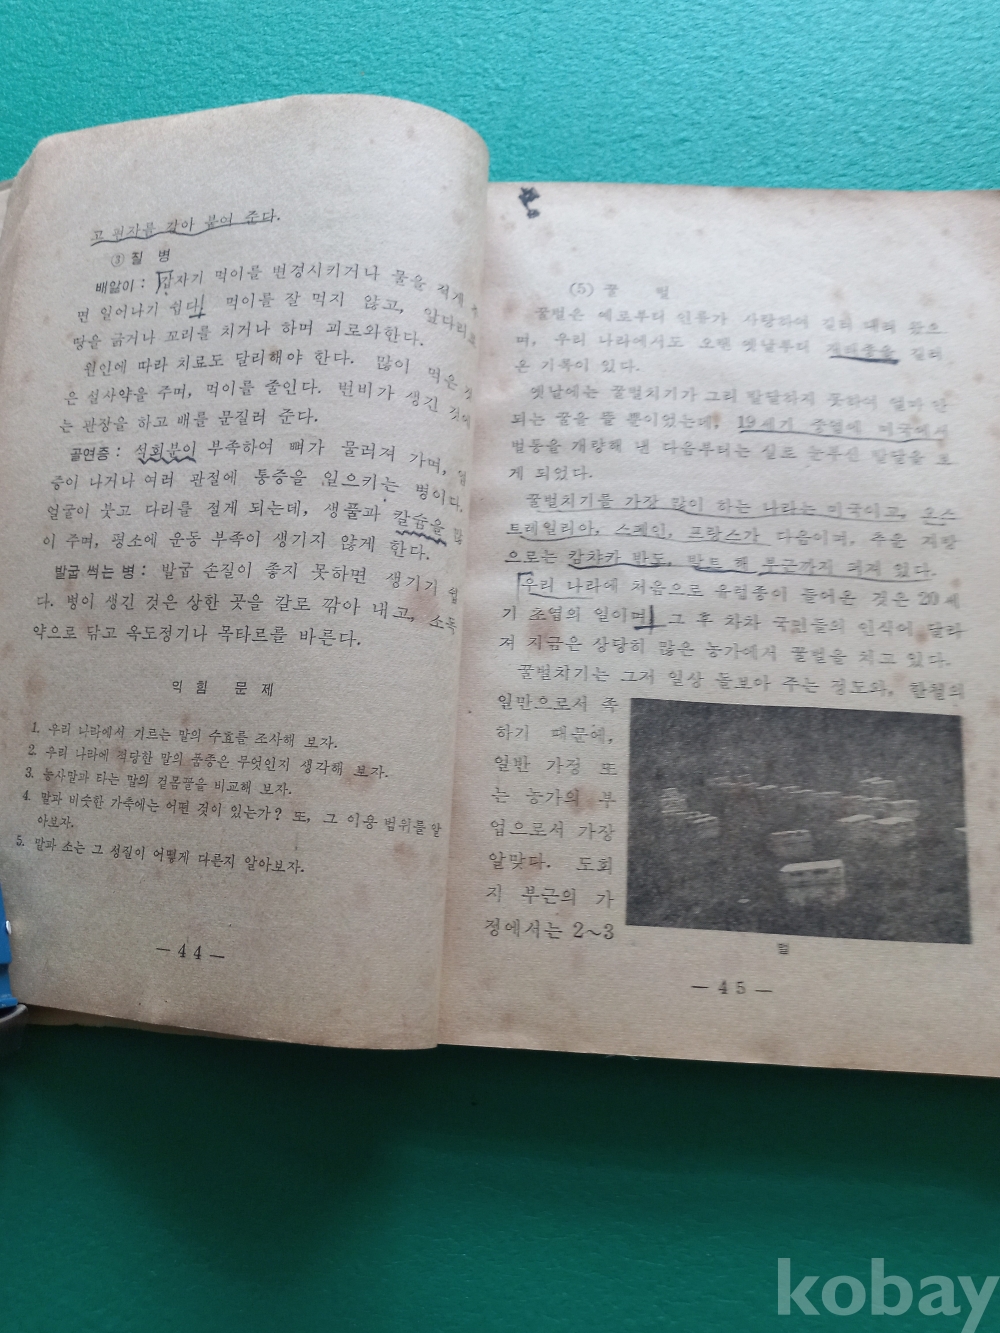 고 원자를 갈아 붙여 준다.
③ 질 병
배앓이 : 갑자기 먹이를 변경시키거나 물을 적게 주
면 일어나기 쉽다. 먹이를 잘 먹지 않고, 앞다리로
땅을 긁거나 꼬리를 치거나 하며 괴로와한다.
원인에 따라 치료도 달리해야 한다. 많이 먹은 것
은 설사약을 주며, 먹이를 줄인다. 변비가 생긴 것에
는 관장을 하고 배를 문질러 준다.
골연증 : 석회분이 부족하여 뼈가 물러져 가며, 염
증이 나거나 여러 관절에 통증을 일으키는 병이다.
얼굴이 붓고 다리를 절게 되는데, 생풀과 칼슘을 많
이 주며, 평소에 운동 부족이 생기지 않게 한다.
발굽 썩는 병 : 발굽 손질이 좋지 못하면 생기기 쉽
다. 병이 생긴 것은 상한 곳을 칼로 깎아 내고, 소독
약으로 닦고 옥도정기나 목타르를 바른다.
익 힘 문 제
1. 우리 나라에서 기르는 말의 수효를 조사해 보자.
2. 우리 나라에 적당한 말의 품종은 무엇인지 생각해 보자.
3. 농사말과 타는 말의 겉몸꼴을 비교해 보자.
4. 말과 비슷한 가축에는 어떤 것이 있는가? 또, 그 이용 범위를 알
아보자.
5. 말과 소는 그 성질이 어떻게 다른지 알아보자.
— 44 —
(5) 꿀 벌
꿀벌은 예로부터 인류가 사랑하여 길러 내려 왔으
며, 우리 나라에서도 오랜 옛날부터 재래종을 길러
온 기록이 있다.
옛날에는 꿀벌치기가 그리 발달하지 못하여 얼마 안
되는 꿀을 뜰 뿐이었는데, 19세기 중엽에 미국에서
벌통을 개량해 낸 다음부터는 실로 눈부신 발달을 보
게 되었다.
꿀벌치기를 가장 많이 하는 나라는 미국이고, 오스
트레일리아, 스페인, 프랑스가 다음이며, 추운 지방
으로는 캄차카 반도, 발트 해 부근까지 퍼져 있다.
우리 나라에 처음으로 유럽종이 들어온 것은 20세
기 초엽의 일이며, 그 후 차차 국민들의 인식이 달라
져 지금은 상당히 많은 농가에서 꿀벌을 치고 있다.
꿀벌치기는 그저 일상 돌보아 주는 정도와, 한철의
일만으로서 족
하기 때문에,
일반 가정 또
는 농가의 부
업으로서 가장
알맞다. 도회
지 부근의 가
정에서는 2~3
벌
— 45 —
kobay